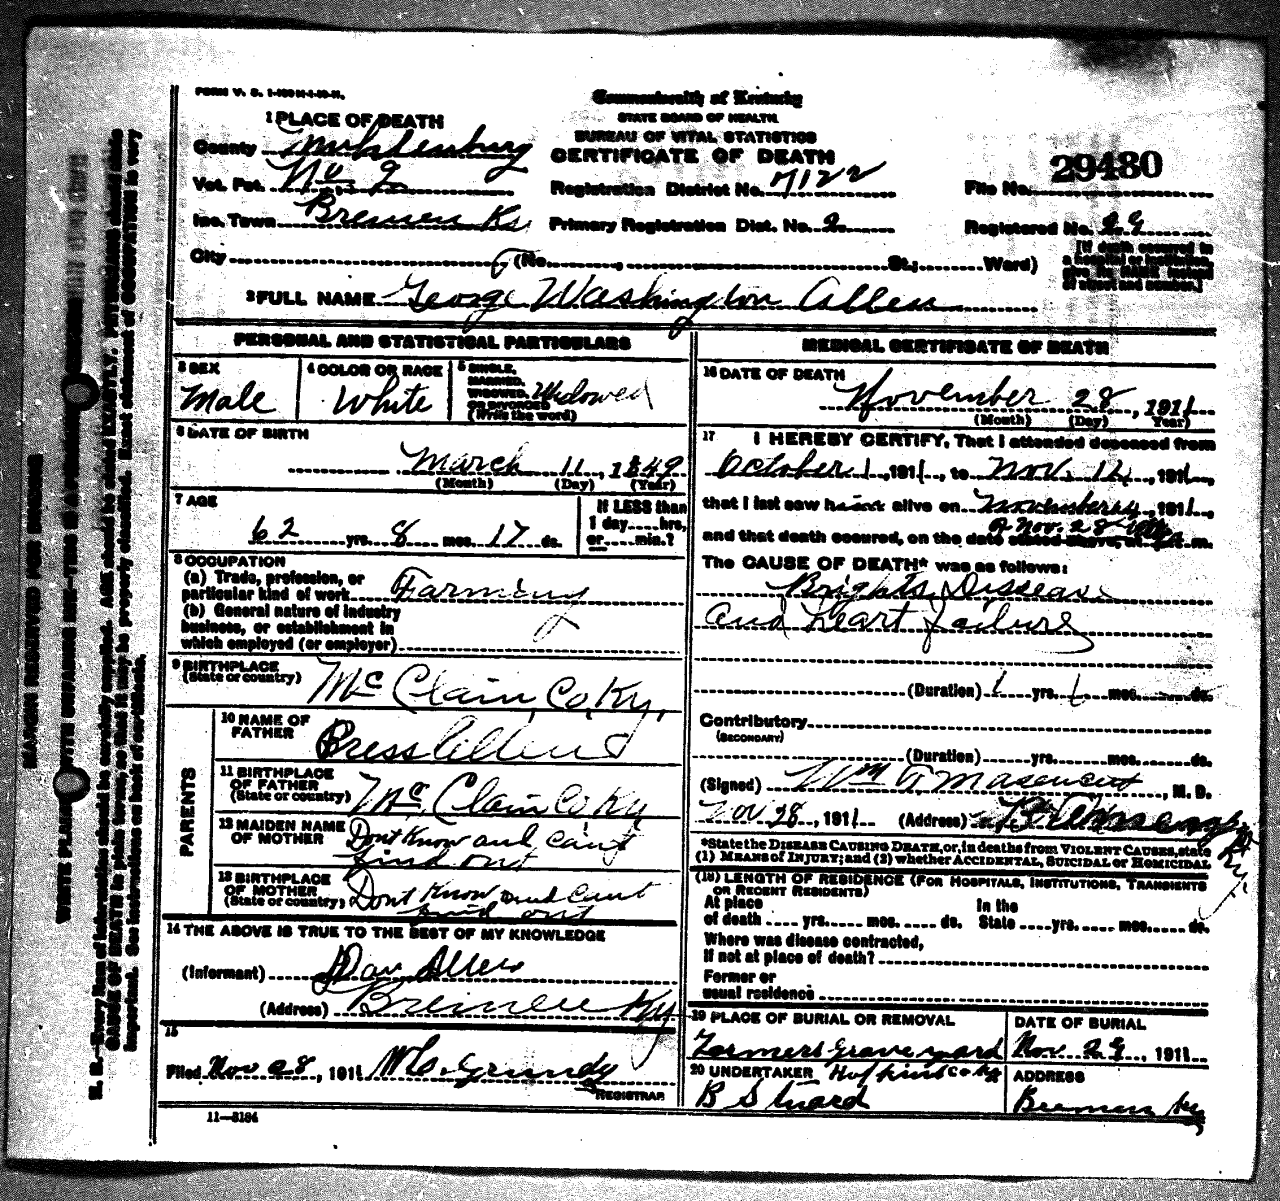 FORM V. S. 1-
Commonwealth of Kentucky
STATE BOARD OF HEALTH
BUREAU OF VITAL STATISTICS
CERTIFICATE OF DEATH
1 PLACE OF DEATH
County Muhlenburg
Vot. Pct. No 2
Inc. Town Bremen Ky
City (No. , St.; Ward)
Registration District No. 7122
Primary Registration Dist. No. 2
File No. 29480
Registered No. 29
[If death occurred in a hospital or institution, give its NAME instead of street and number.]
2 FULL NAME George Washington Allen
PERSONAL AND STATISTICAL PARTICULARS
3 SEX
Male
4 COLOR OR RACE
White
5 SINGLE, MARRIED, WIDOWED, OR DIVORCED (Write the word)
Widowed
6 DATE OF BIRTH
March 11, 1849
(Month) (Day) (Year)
7 AGE
62 yrs. 8 mos. 17 ds.
If LESS than 1 day hrs. or min.?
8 OCCUPATION
(a) Trade, profession, or
particular kind of work Farming
(b) General nature of industry
business, or establishment in
which employed (or employer)
9 BIRTHPLACE
(State or country) Mc Clain, Co, Ky,
PARENTS
10 NAME OF FATHER
Press Allen
11 BIRTHPLACE OF FATHER
(State or country) Mc, Clain Co Ky
12 MAIDEN NAME OF MOTHER
Dont Know and cant find out
13 BIRTHPLACE OF MOTHER
(State or country) Dont Know and cant find out
14 THE ABOVE IS TRUE TO THE BEST OF MY KNOWLEDGE
(Informant) Allen
(Address) Bremen Ky
15
Filed Nov 28, 1911 Grundy
REGISTRAR
11-5184
MEDICAL CERTIFICATE OF DEATH
16 DATE OF DEATH
November 28, 1911
(Month) (Day) (Year)
17 I HEREBY CERTIFY, That I attended deceased from
October 1, 1911, to Nov. 14, 1911,
that I last saw him alive on November 14, 1911,
of Nov. 28
and that death occured, on the date stated above, at m.
The CAUSE OF DEATH* was as follows:
Brights Disseas
and Heart failure
(Duration) 1 yrs. 1 mos. ds.
Contributory
(SECONDARY)
(Duration) yrs. mos. ds.
(Signed) Wm , M. D.
Nov 28, 1911 (Address) Ky.
*State the DISEASE CAUSING DEATH, or, in deaths from VIOLENT CAUSES, state
(1) MEANS OF INJURY; and (2) whether ACCIDENTAL, SUICIDAL or HOMICIDAL
(18) LENGTH OF RESIDENCE (FOR HOSPITALS, INSTITUTIONS, TRANSIENTS
OR RECENT RESIDENTS)
At place of death yrs. mos. ds. In the State yrs. mos. ds.
Where was disease contracted,
If not at place of death?
Former or
usual residence
19 PLACE OF BURIAL OR REMOVAL
Grave yard
Hopkins Co Ky
DATE OF BURIAL
Nov. 29, 1911
20 UNDERTAKER
B S
ADDRESS
Bremen Ky
MARGIN RESERVED FOR BINDING
WRITE PLAINLY WITH UNFADING INK—THIS IS A PERMANENT RECORD
N. B.—Every item of information should be carefully supplied. AGE should be stated EXACTLY. PHYSICIANS should state
CAUSE OF DEATH in plain terms, so that it may be properly classified. Exact statement of OCCUPATION is very
important. See instructions on back of certificate.